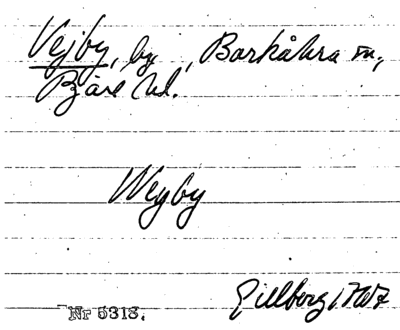 Vejby, by, Barkåkra sn,
Bjäre hd.
Weyby
Gillberg 1767
Nr 5318.